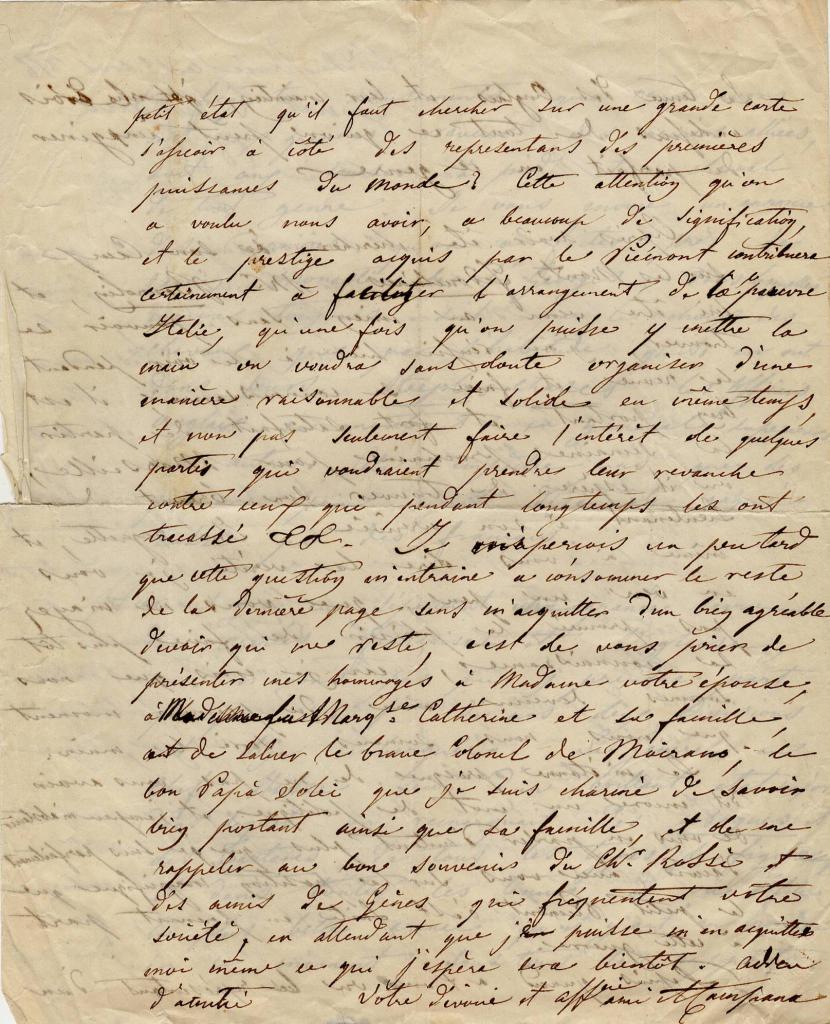 petit état qu'il faut chercher sur une grande carte
s'asseoir à côté des représentans des premières
puissances du monde? Cette attention qu'on
a voulu nous avoir, a beaucoup de signification,
et le prestige acquis par le Piémont contribuera
certainement à faciliter l'arrangement de la pauvre
Italie, qu'une fois qu'on puisse y mettre la
main on voudra sans doute organiser d'une
manière raisonnable et solide en même temps,
et non pas seulement faire l'intérêt de quelques
partis qui voudraient prendre leur revanche
contre ceux qui pendant longtemps les ont
tracassé &&. Je m'aperçois un peu tard
que cette question m'entraine a consommer le reste
de la dernière page sans m'acquitter d'un bien agréable
devoir qui me reste, c'est de vous prier de
présenter mes hommages à Madame votre épouse,
à Marq.se Cathérine et sa famille,
et de saluer le brave Colonel de Moirano, le
bon Papà Solei que je suis charmé de savoir
bien portant ainsi que sa famille, et de me
rappeler au bon souvenir du Ch.r Rossi et
des amis de Gênes qui fréquentent votre
société, en attendant que je puisse m'en acquitter
moi même ce qui j'espère sera bientôt. adieu
d'amitié Votre dévoué et aff. ami